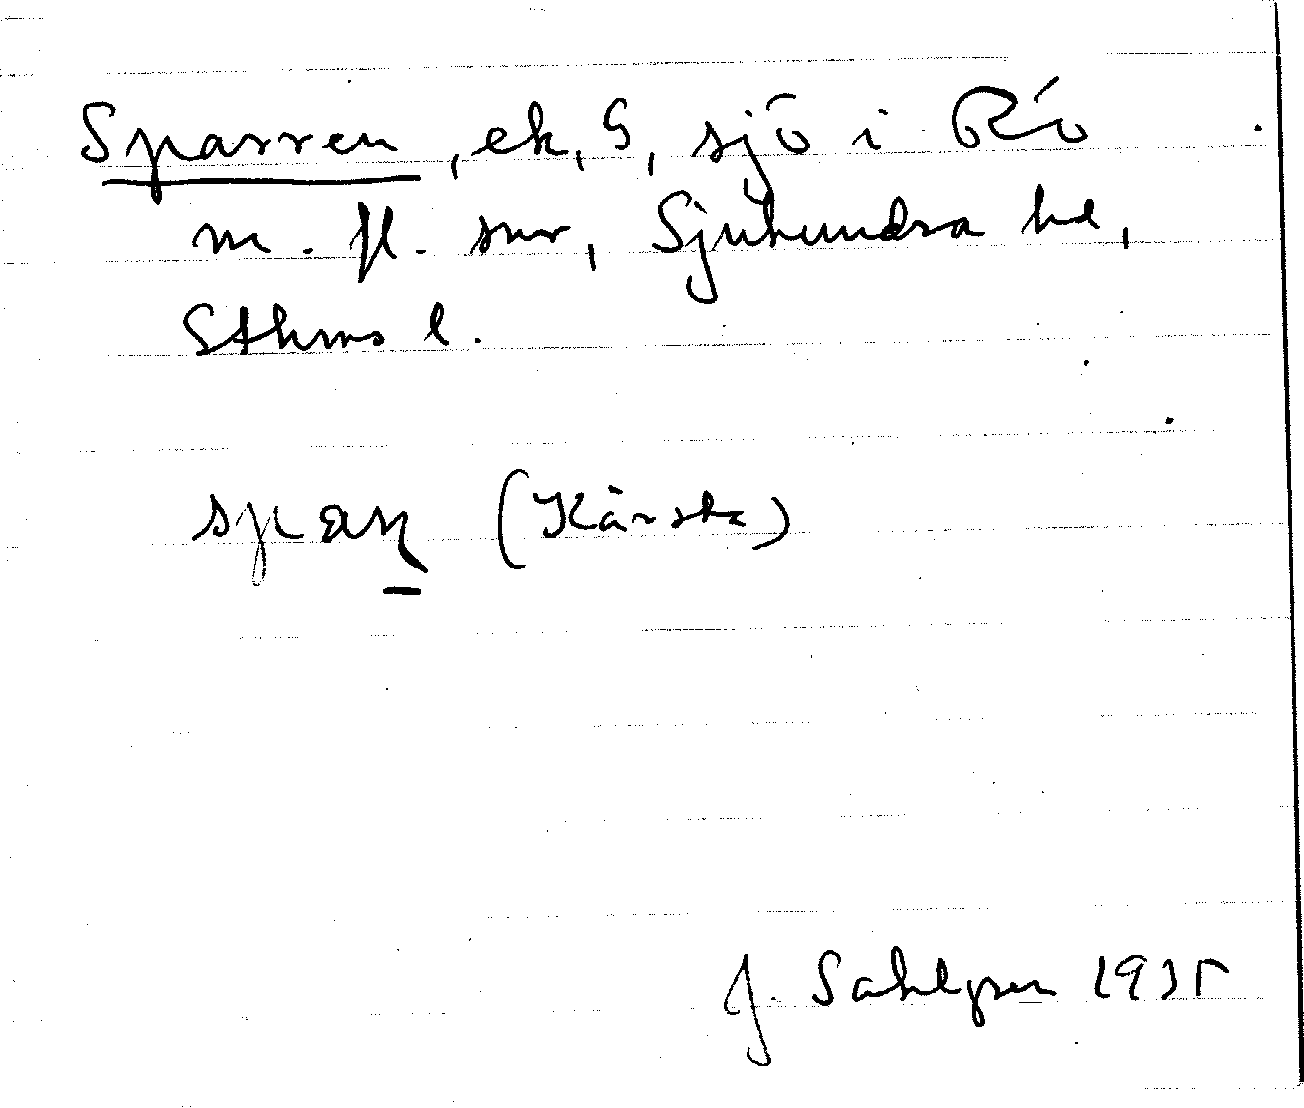 Sparren, ek. S, sjö i Rö
m. fl. snr, Sjuhundra hd,
Sthms l.
span (Kårsta)
J. Sahlgren 1935